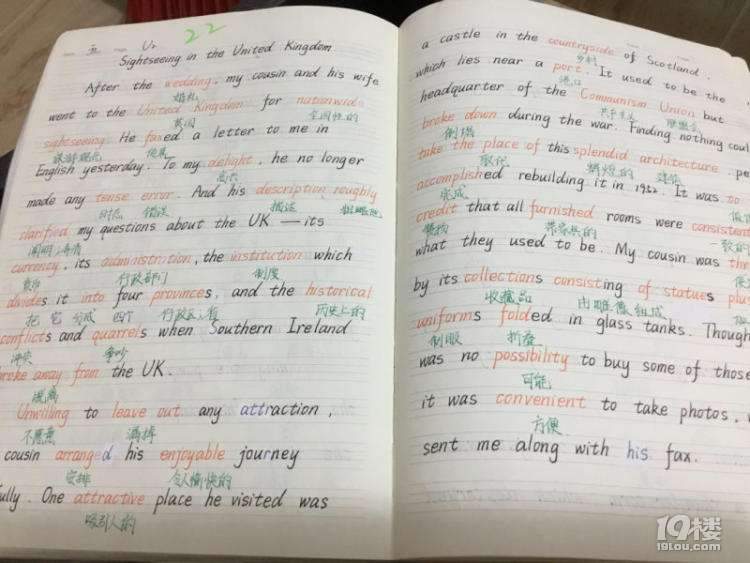 22
Sightseeing in the United Kingdom
After the wedding, my cousin and his wife
婚礼
went to the United Kingdom for nationwide
英国 全国性的
sightseeing. He faxed a letter to me in
旅游观光 传真
English yesterday. To my delight, he no longer
高兴
made any tense error. And his description roughly
时态 错误 描述 粗略地
clarified my questions about the UK — its
阐明,澄清
currency, its administration, the institution which
货币 行政部门 制度
divides it into four provinces, and the historical
把 它 分成 四个 历史上的
conflicts and quarrels when Southern Ireland
冲突 争吵
broke away from the UK.
脱离
Unwilling to leave out any attraction,
不愿意 漏掉
cousin arranged his enjoyable journey
安排 令人愉快的
fully. One attractive place he visited was
吸引人的
a castle in the countryside of Scotland,
乡村
which lies near a port. It used to be the
港口
headquarter of the Communism Union but
共产主义 联盟会
broke down during the war. Finding nothing coul
倒塌
take the place of this splendid architecture, pe
取代 辉煌的 建筑
accomplished rebuilding it in 1952. It was to
完成
credit that all furnished rooms were consistent
赞扬 带家具的 一致的
what they used to be. My cousin was thr
by its collections consisting of statues plu
收藏品 由雕像组成
uniforms folded in glass tanks. Though
制服 折叠
was no possibility to buy some of those
可能
it was convenient to take photos,
方便
sent me along with his fax.
19楼
19lou.com